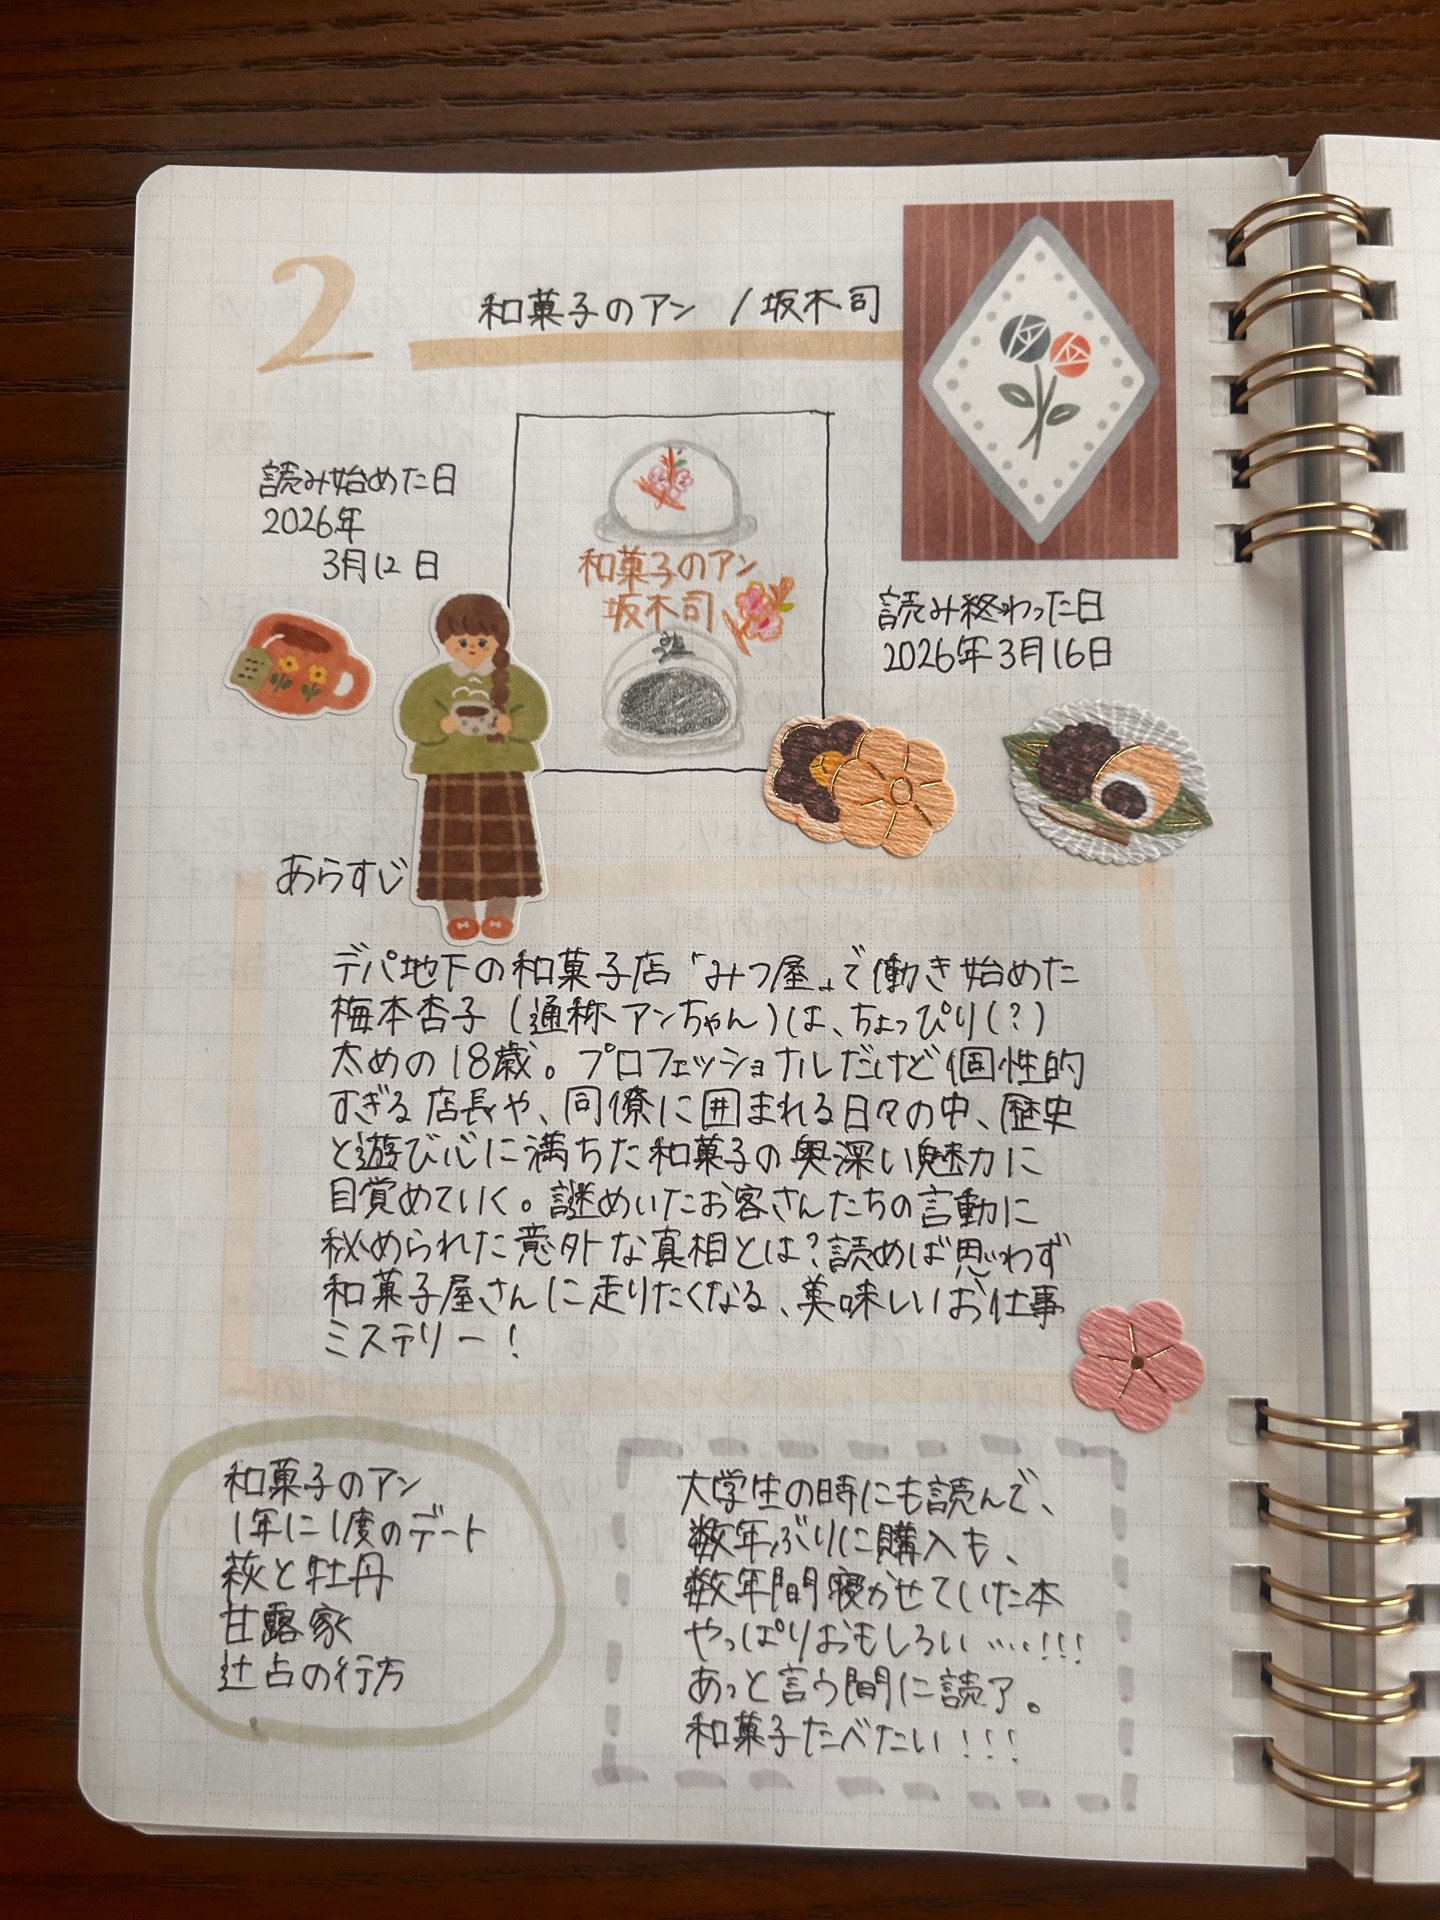 2
和菓子のアン / 坂木司
読み始めた日
2026年
3月12日
和菓子のアン
坂木司
読み終わった日
2026年3月16日
あらすじ
デパ地下の和菓子店「みつ屋」で働き始めた
梅本杏子(通称アンちゃん)は、ちょっぴり(?)
太めの18歳。プロフェッショナルだけど個性的
すぎる店長や、同僚に囲まれる日々の中、歴史
と遊び心に満ちた和菓子の奥深い魅力に
目覚めていく。謎めいたお客さんたちの言動に
秘められた意外な真相とは?読めば思わず
和菓子屋さんに走りたくなる、美味しいお仕事
ミステリー!
和菓子のアン
1年に1度のデート
萩と牡丹
甘露家
辻占の行方
大学生の時にも読んで、
数年ぶりに購入も、
数年間寝かせていた本
やっぱりおもしろい……!!!
あっと言う間に読了。
和菓子たべたい!!!